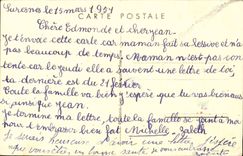 Suresnes le 15 mars 1901
CARTE POSTALE
Chère Edmonde et cher jean
Je t'envoie cette carte car maman fait sa lessive et n'a
pas beaucoup de temps. Maman n'est pas con
tente car le jeudi elle a souvent une lettre de toi
ta dernière est du 21 février
Toute la famille va bien j'espère que tu vas bien aus
si, ainsi que jean.
je termine ma lettre, toute la famille se joint à moi
pour t'embrasser bien fort Michelle
Je serais heureuse avoir une lettre j'espère
que vous êtes en bonne santé